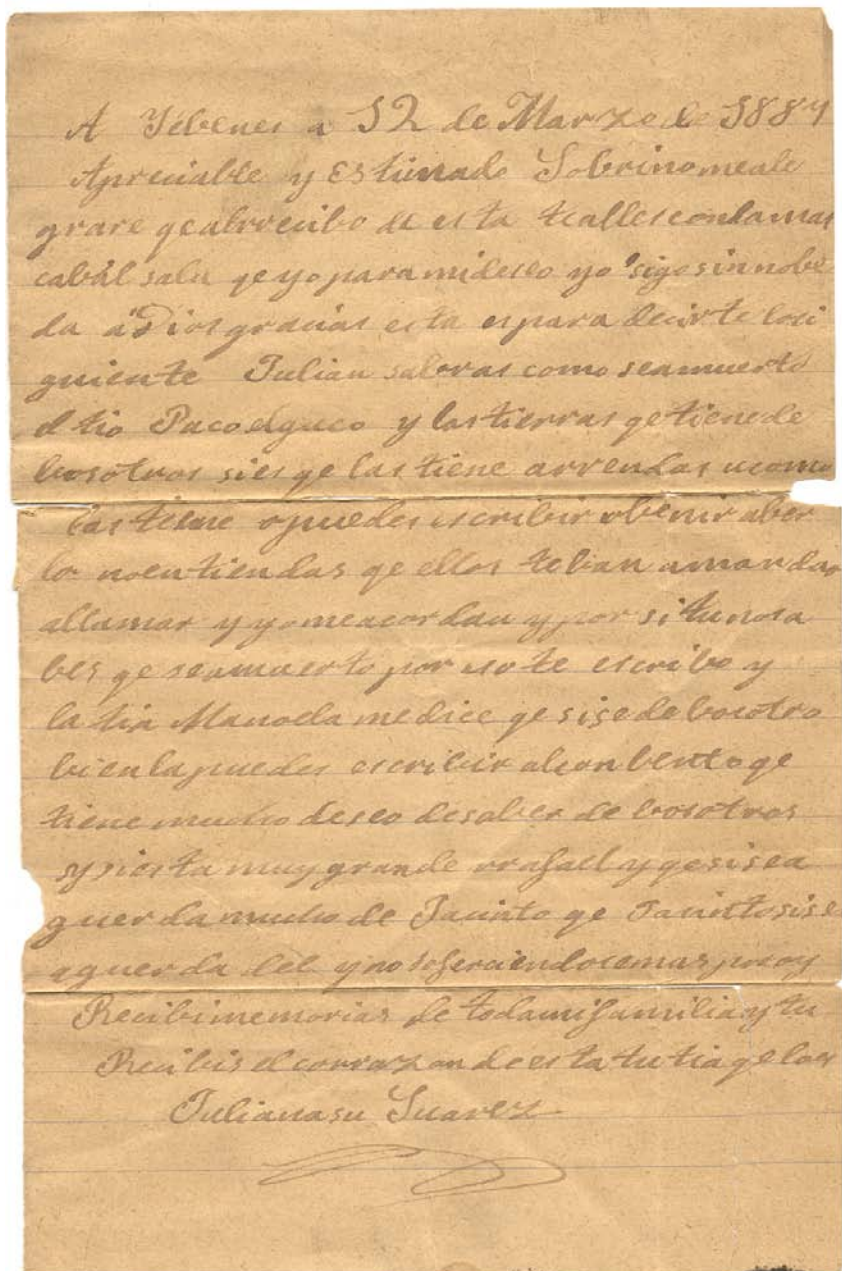 A Yébenes a 12 de Marzo de 1889
Apreciable y Estimado Sobrino meale
grare qe alrrecibo de esta tealles conlamas
cabál salu qe yo para mideseo yo sigo sinnobe
da a Dios gracias esta es para decirte losi
guiente Julian sabras como seamuerto
el tio Paco y las tierras qe tiene de
bosotros sies qe las tiene arrendas ucomo
las tiene opuedes escribir obenir aber
lo noentiendas qe ellos teban amandar
allamar y yo meacordau y por si tu nosa
bes qe seamuerto por eso te escribo y
la tia Manoela me dice qe sise de bosotro
bien la puedes escribir alconbento qe
tiene mucho deseo desaber de bosotros
y siesta muy grande rrafael y qe sisea
guerda mucho de Jacinto qe Jacinto sise
aguerda del y no sofreciendosemas
Recibimemorias de todamifamilia y tu
Recibis el corrazon de esta tu tia qe los
Julianasu Suarez